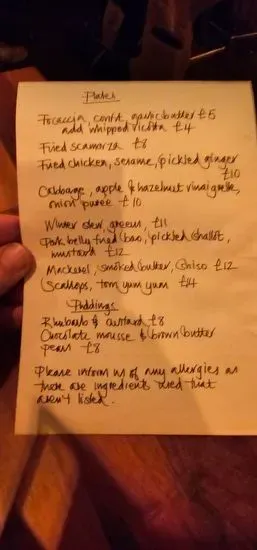 Plates
Focaccia, confit garlic butter £5
add whipped ricotta £4
Fried scamorza £8
Fried chicken, sesame, pickled ginger
£10
Cabbage, apple & hazelnut vinaigrette,
onion puree £10
Winter slaw, greens, £11
Pork belly fried bao, pickled shallot,
mustard £12
Mackerel, smoked butter, Shiso £12
Scallops, tom yum yum £14
Puddings
Rhubarb & custard £8
Chocolate mousse & brown butter
pears £8
Please inform us of any allergies as
there are ingredients used that
aren't listed.